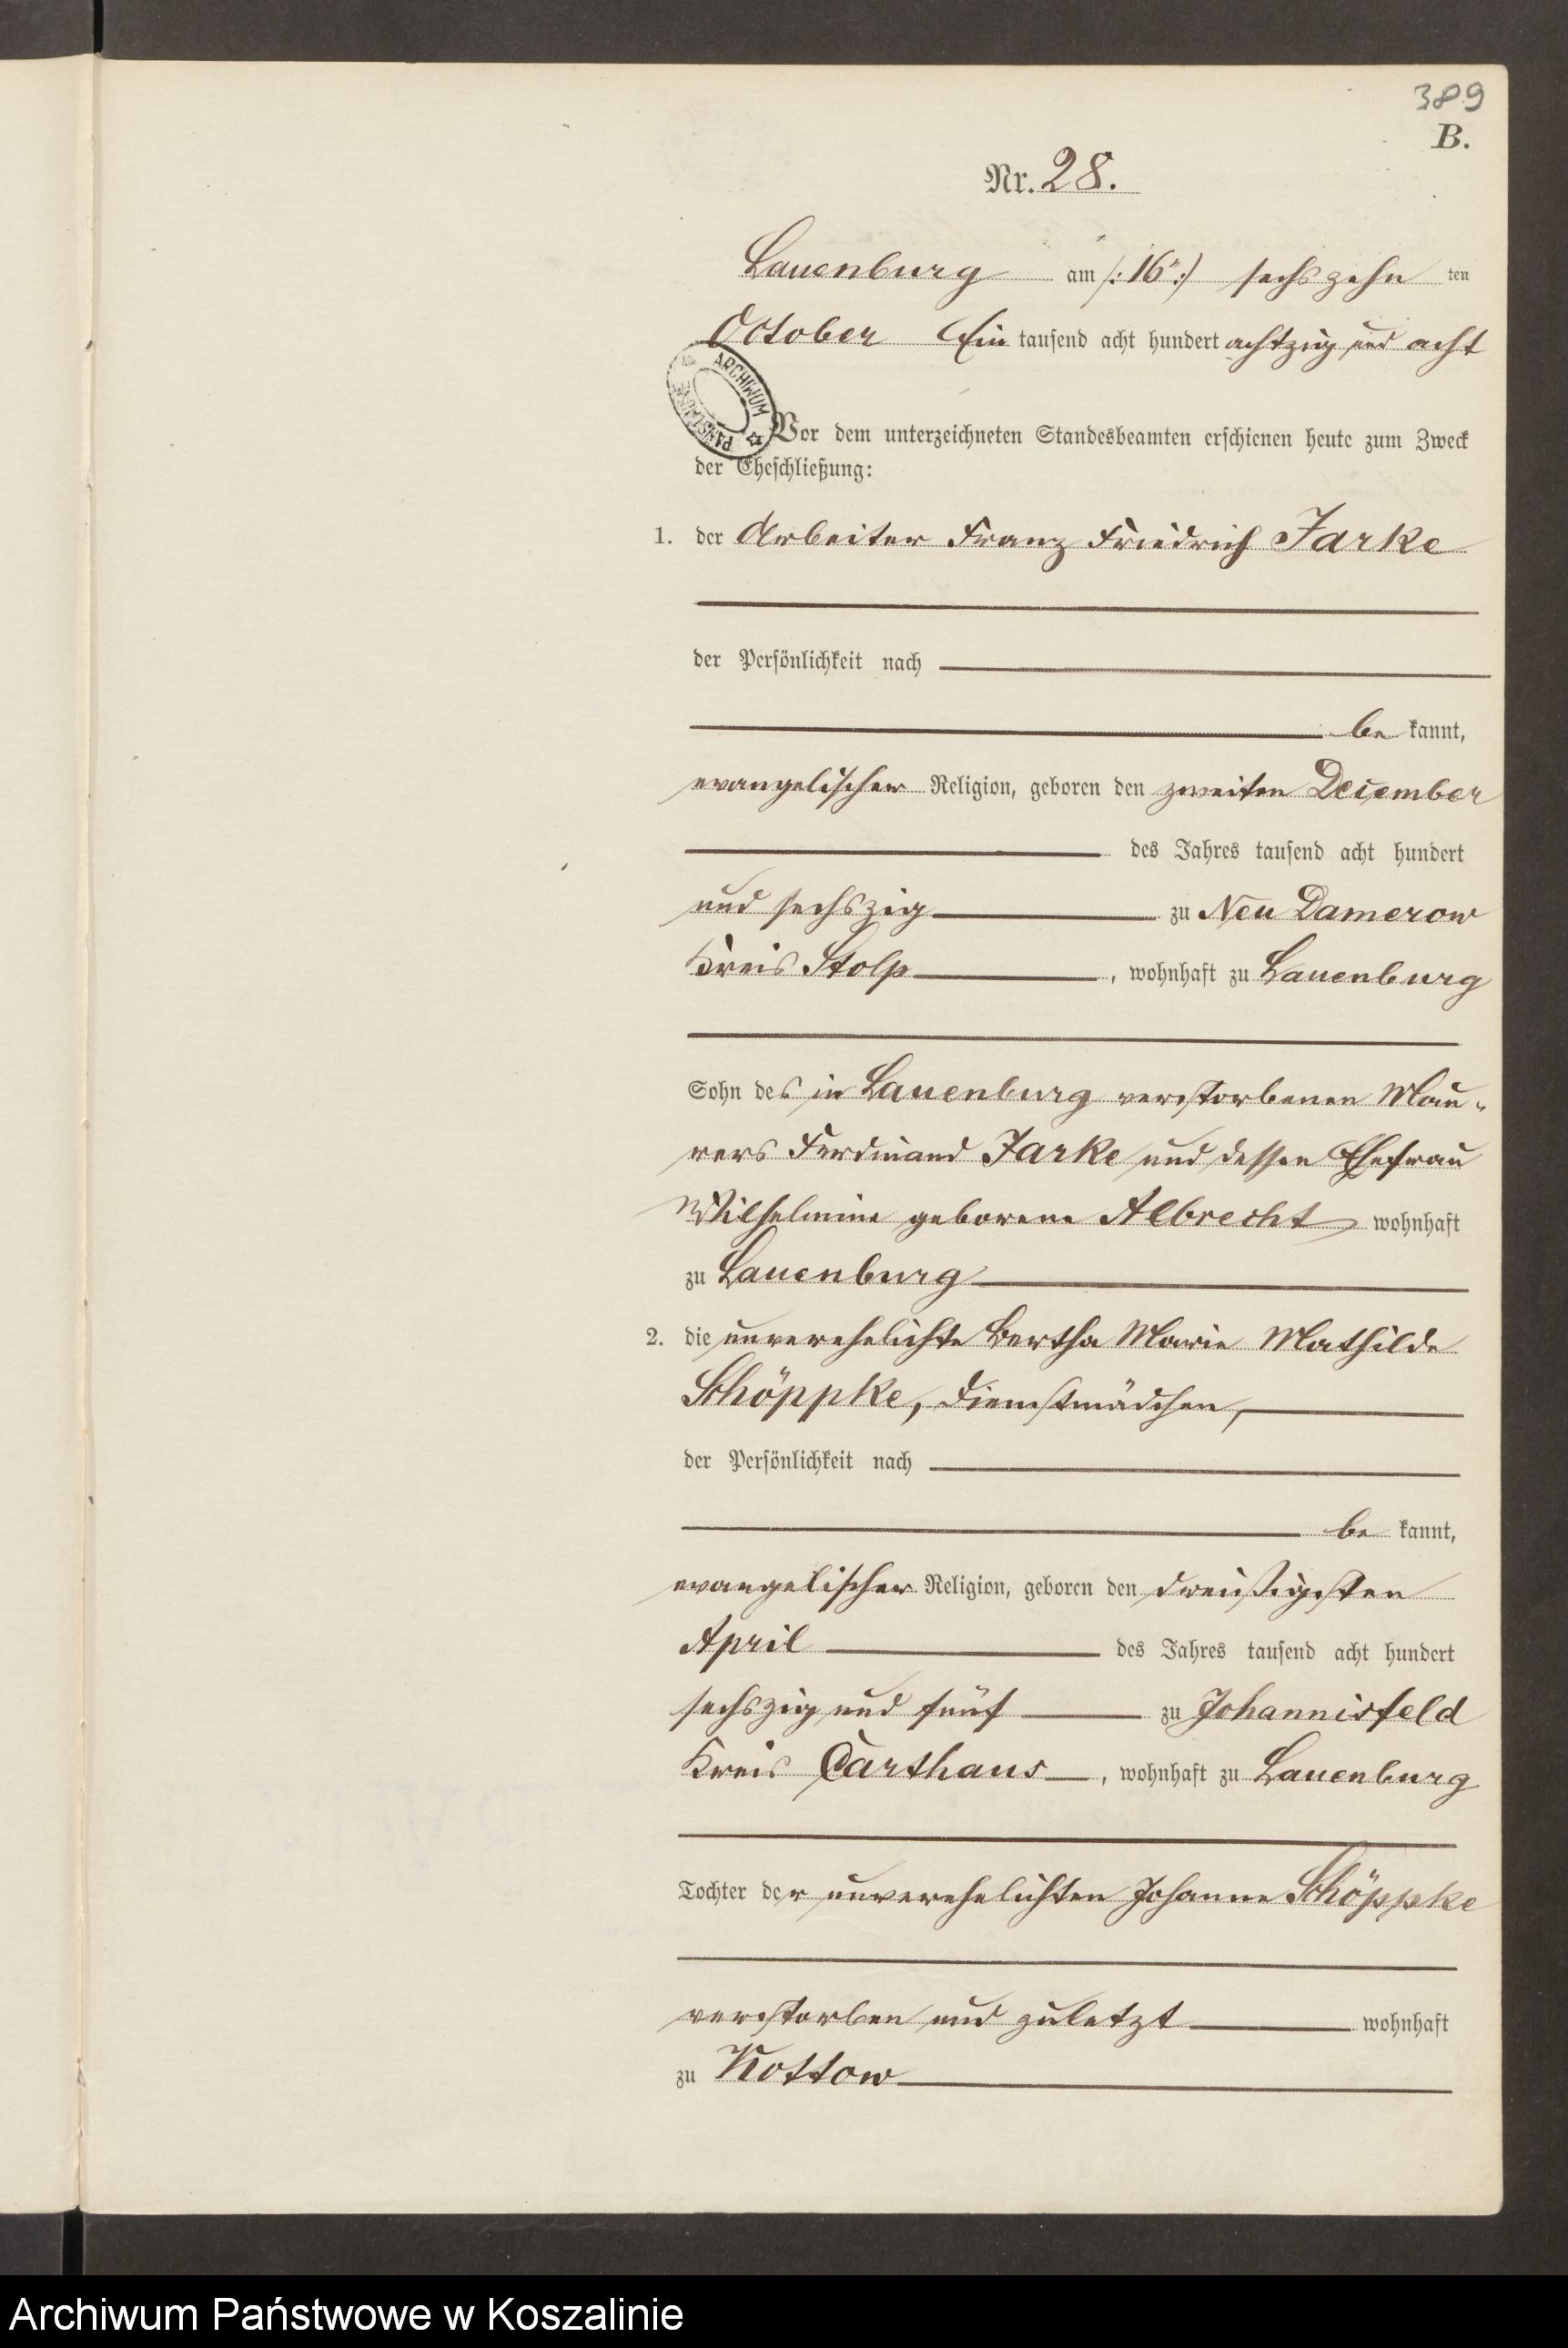 389
B.
Nr. 28.
Lauenburg am /: 16" :/ sechszehn ten
October Ein tausend acht hundert achtzig und acht
ARCHIWUM PAŃSTWOWE
Vor dem unterzeichneten Standesbeamten erschienen heute zum Zweck
der Eheschließung:
1. der Arbeiter Franz Friedrich Jarke
der Persönlichkeit nach
be kannt,
evangelischer Religion, geboren den zweiten December
des Jahres tausend acht hundert
und sechszig zu Neu Damerow
Kreis Stolp, wohnhaft zu Lauenburg
Sohn des in Lauenburg verstorbenen Mau-
rers Ferdinand Jarke und dessen Ehefrau
Wilhelmine geborene Albrecht wohnhaft
zu Lauenburg
2. die unverehelichte Bertha Marie Mathilde
Schöppke, Dienstmädchen,
der Persönlichkeit nach
be kannt,
evangelischer Religion, geboren den dreißigsten
April des Jahres tausend acht hundert
sechszig und fünf zu Johannisfeld
Kreis Carthaus, wohnhaft zu Lauenburg
Tochter der unverehelichten Johanne Schöppke
verstorben und zuletzt wohnhaft
zu Kottow
Archiwum Państwowe w Koszalinie